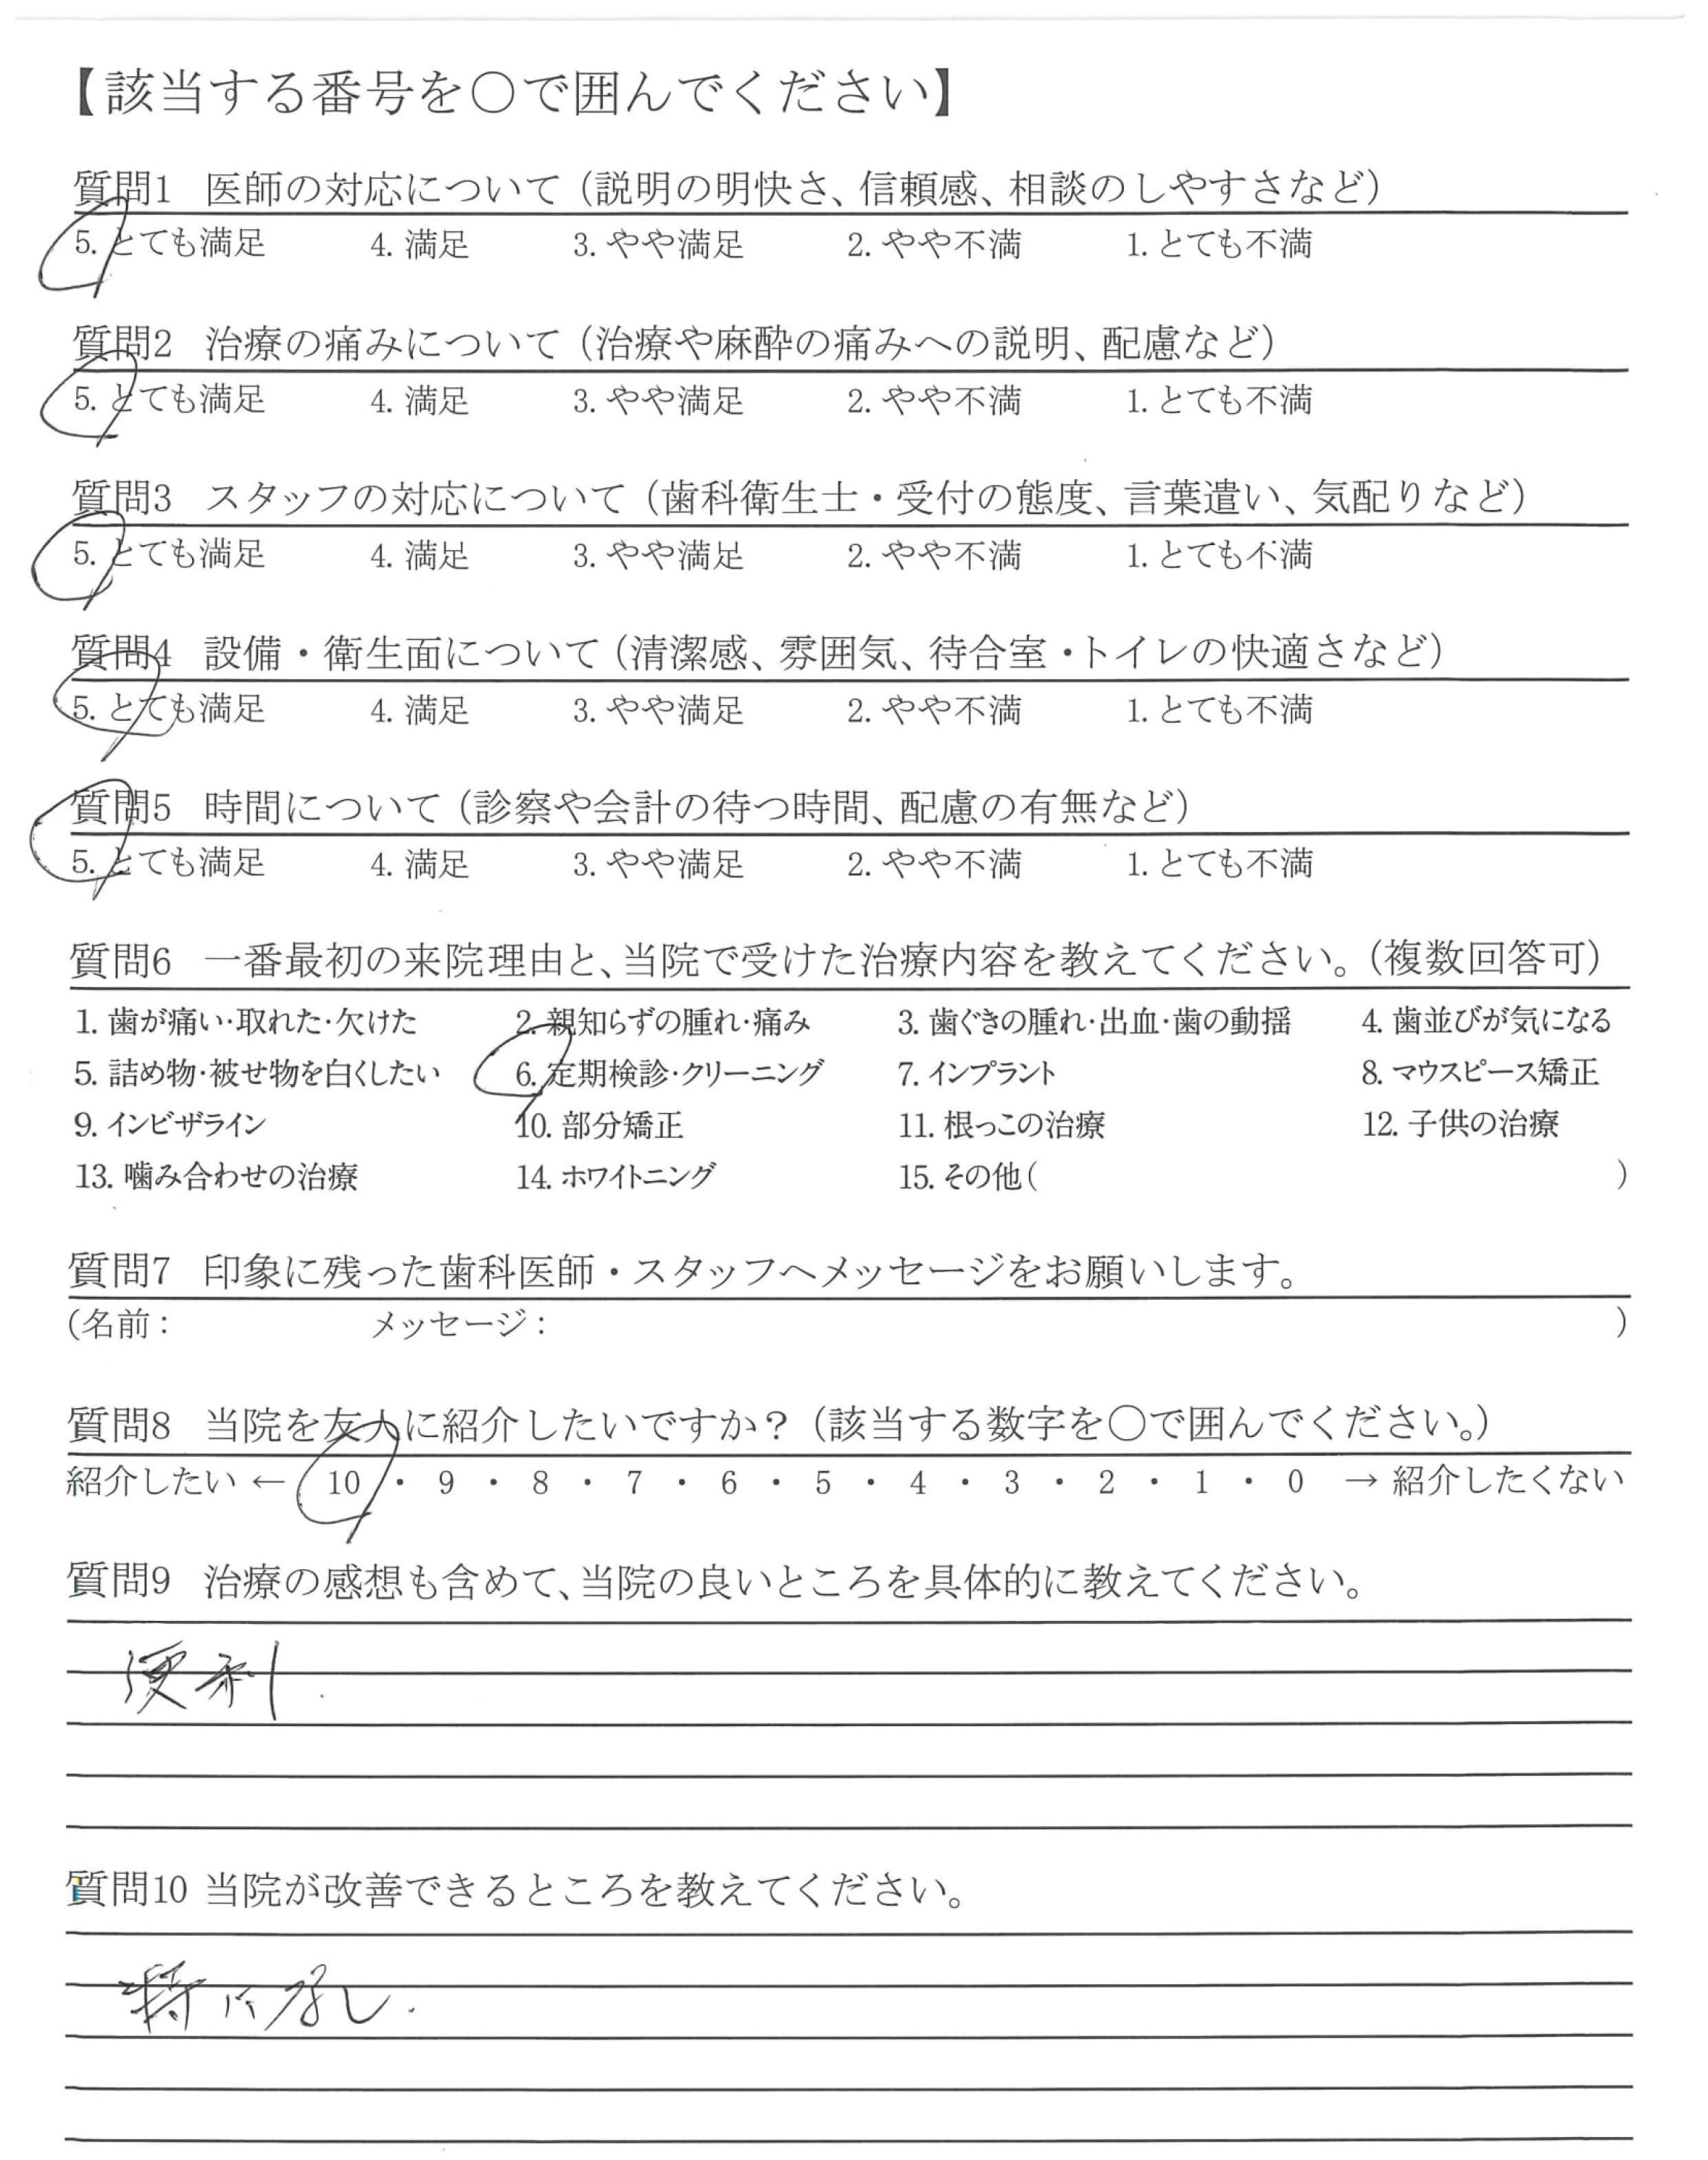 【該当する番号を○で囲んでください】
質問1 医師の対応について（説明の明快さ、信頼感、相談のしやすさなど）
5. とても満足 4. 満足 3. やや満足 2. やや不満 1. とても不満
質問2 治療の痛みについて（治療や麻酔の痛みへの説明、配慮など）
5. とても満足 4. 満足 3. やや満足 2. やや不満 1. とても不満
質問3 スタッフの対応について（歯科衛生士・受付の態度、言葉遣い、気配りなど）
5. とても満足 4. 満足 3. やや満足 2. やや不満 1. とても不満
質問4 設備・衛生面について（清潔感、雰囲気、待合室・トイレの快適さなど）
5. とても満足 4. 満足 3. やや満足 2. やや不満 1. とても不満
質問5 時間について（診察や会計の待つ時間、配慮の有無など）
5. とても満足 4. 満足 3. やや満足 2. やや不満 1. とても不満
質問6 一番最初の来院理由と、当院で受けた治療内容を教えてください。（複数回答可）
1. 歯が痛い・取れた・欠けた 2. 親知らずの腫れ・痛み 3. 歯ぐきの腫れ・出血・歯の動揺 4. 歯並びが気になる
5. 詰め物・被せ物を白くしたい 6. 定期検診・クリーニング 7. インプラント 8. マウスピース矯正
9. インビザライン 10. 部分矯正 11. 根っこの治療 12. 子供の治療
13. 噛み合わせの治療 14. ホワイトニング 15. その他（ ）
質問7 印象に残った歯科医師・スタッフへメッセージをお願いします。
（名前： メッセージ： ）
質問8 当院を友人に紹介したいですか？（該当する数字を○で囲んでください。）
紹介したい ← 10 ・ 9 ・ 8 ・ 7 ・ 6 ・ 5 ・ 4 ・ 3 ・ 2 ・ 1 ・ 0 → 紹介したくない
質問9 治療の感想も含めて、当院の良いところを具体的に教えてください。
便利.
質問10 当院が改善できるところを教えてください。
特になし.